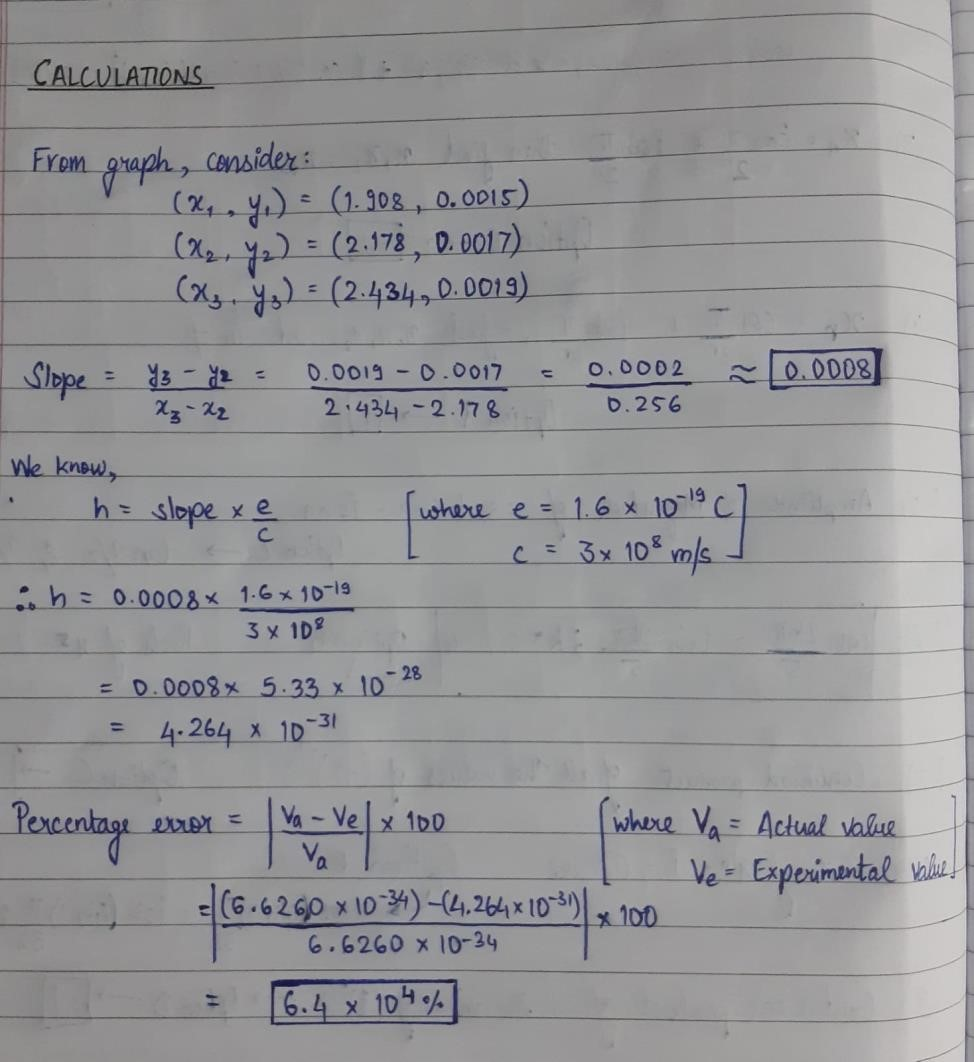 CALCULATIONS
From graph, consider:
(x₁, y₁) = (1.908, 0.0015)
(x₂, y₂) = (2.178, 0.0017)
(x₃, y₃) = (2.434, 0.0019)
Slope = y₃ - y₂ / x₃ - x₂ = 0.0019 - 0.0017 / 2.434 - 2.178 = 0.0002 / 0.256 ≈ 0.0008
We know,
h = slope × e/c [where e = 1.6 × 10⁻¹⁹ C
c = 3 × 10⁸ m/s]
∴ h = 0.0008 × 1.6 × 10⁻¹⁹ / 3 × 10⁸
= 0.0008 × 5.33 × 10⁻²⁸
= 4.264 × 10⁻³¹
Percentage error = |Va - Ve / Va| × 100 [where Va = Actual value
Ve = Experimental value]
= |(6.6260 × 10⁻³⁴) - (4.264 × 10⁻³¹) / 6.6260 × 10⁻³⁴| × 100
= 6.4 × 10⁴ %